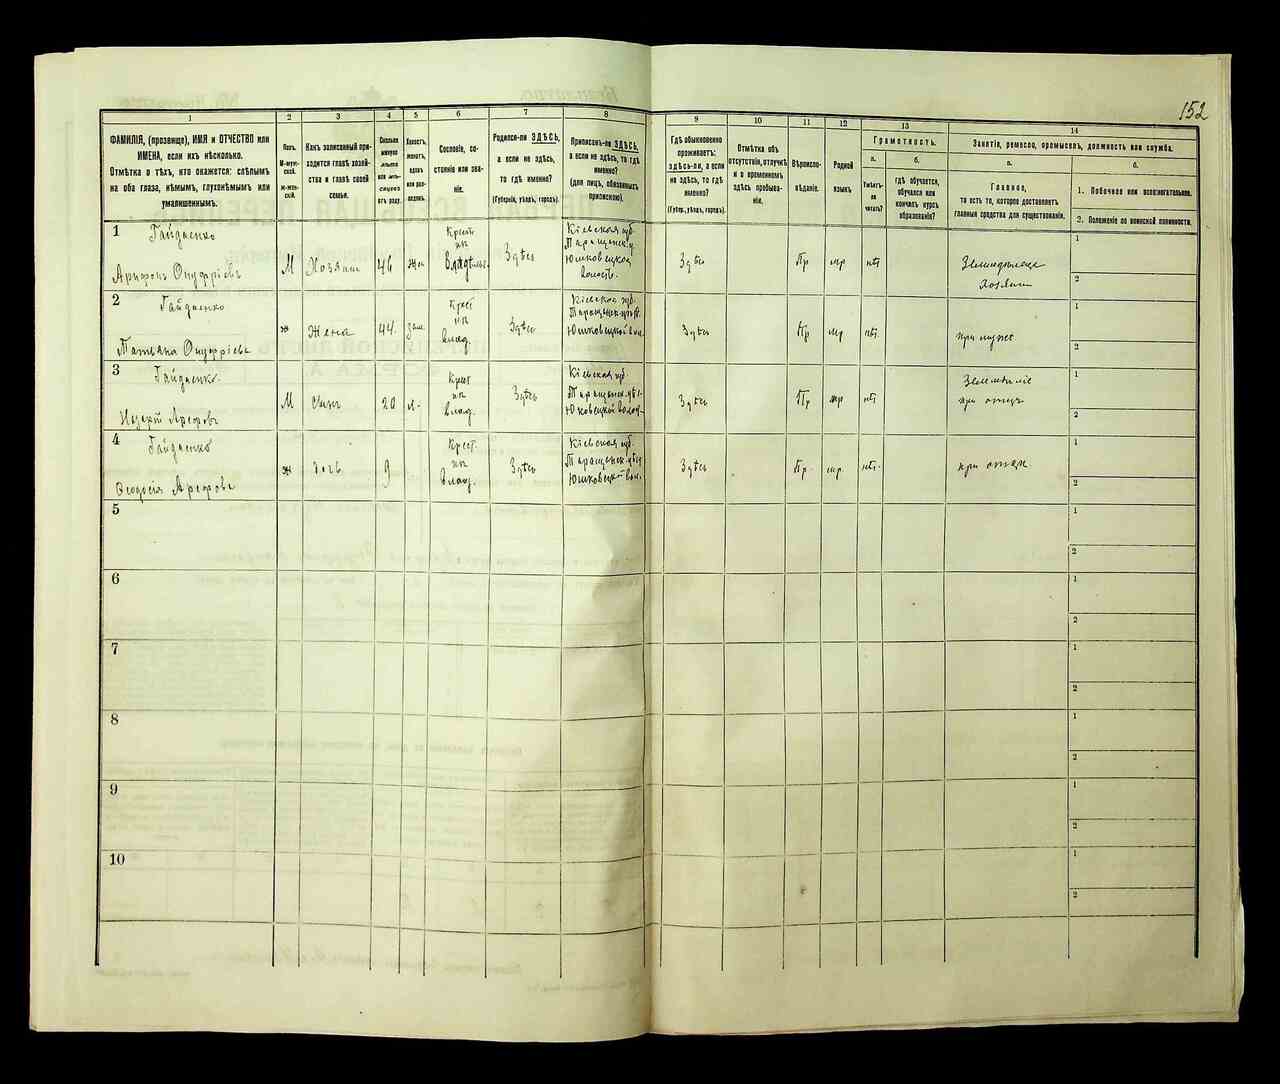 152
1
2
3
4
5
6
7
8
9
10
11
12
13
14
ФАМИЛІЯ, (прозвище), ИМЯ и ОТЧЕСТВО или
ИМЕНА, если ихъ нѣсколько.
Отмѣтка о тѣхъ, кто окажется: слѣпымъ
на оба глаза, нѣмымъ, глухонѣмымъ или
умалишеннымъ.
Полъ.
М-муж-
ской.
Ж-жен-
скій.
Какъ записанный при-
ходится главѣ хозяй-
ства и главѣ своей
семьи.
Сколько
минуло
лѣтъ
или мѣ-
сяцевъ
отъ роду.
Холостъ,
женатъ,
вдовъ
или раз-
веденъ.
Сословіе, со-
стояніе или зва-
ніе.
Родился-ли ЗДѢСЬ,
а если не здѣсь,
то гдѣ именно?
(Губернія, уѣздъ, городъ).
Приписанъ-ли ЗДѢСЬ,
а если не здѣсь, то гдѣ
именно?
(для лицъ, обязанныхъ
припискою).
Гдѣ обыкновенно
проживаетъ:
здѣсь-ли, а если
не здѣсь, то гдѣ
именно?
(Губер., уѣздъ, городъ).
Отмѣтка объ
отсутствіи, отлучкѣ
и о временномъ
здѣсь пребыва-
ніи.
Вѣроиспо-
вѣданіе.
Родной
языкъ
Грамотность.
а.
Умѣетъ-
ли
читать?
б.
гдѣ обучается,
обучался или
кончилъ курсъ
образованія?
Занятія, ремесло, промыселъ, должность или служба.
а.
Главное,
то есть то, которое доставляетъ
главныя средства для существованія.
б.
1. Побочное или вспомогательное.
2. Положеніе по воинской повинности.
1
Гайдаенко
Онуфріевъ
М
Хозяинъ
46
жен
Крест
изъ
владѣльч.
Здѣсь
Кіевская губ.
Таращанск. у.
Юшковецкой
волость.
Здѣсь
Пр
мр
нѣт
Земледѣлецъ
Хозяинъ
1
2
2
Гайдаенко
Татьяна Онуфріева
ж
Жена
44.
зам.
Крест
изъ
влад.
Здѣсь
Кіевская губ.
Юшковецкой вол.
Здѣсь
Пр
мр
нѣт.
при мужѣ
1
2
3
Гайдаенко.
М
сынъ
20
х.
Крест
изъ
влад.
Здѣсь
Кіевская губ.
Здѣсь
Пр
мр
нѣт
Земледѣліе
при отцѣ
1
2
4
Гайдаенко
Феодосія
ж
дочь
9
Крест.
изъ
влад.
Здѣсь
Кіевская губ.
Юшковецкой вол.
Здѣсь
Пр.
мр.
нѣт.
при отцѣ
1
2
5
1
2
6
1
2
7
1
2
8
1
2
9
1
2
10
1
2